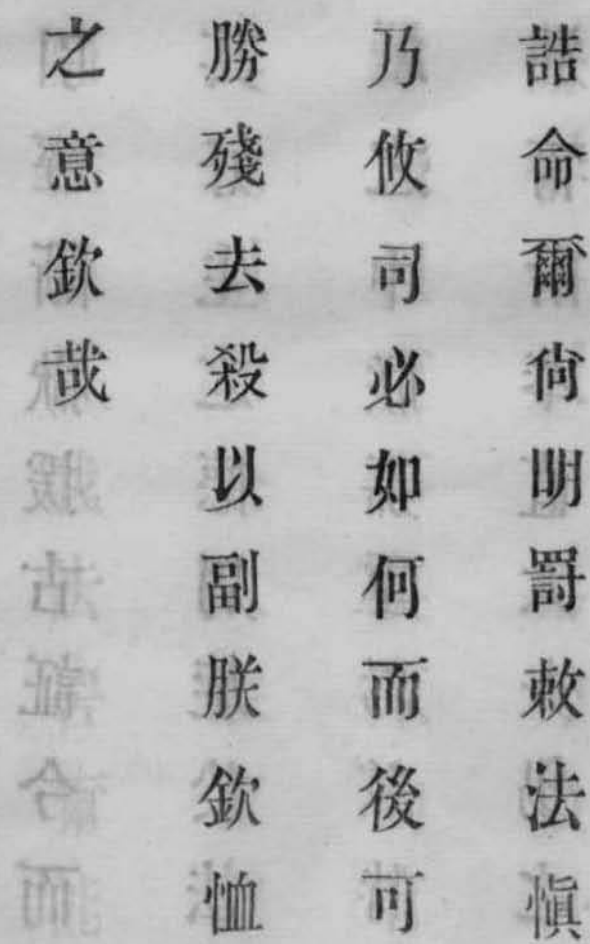 誥命爾尙明罸敕法愼
乃攸司必如何而後可
勝殘去殺以副朕欽恤
之意欽哉